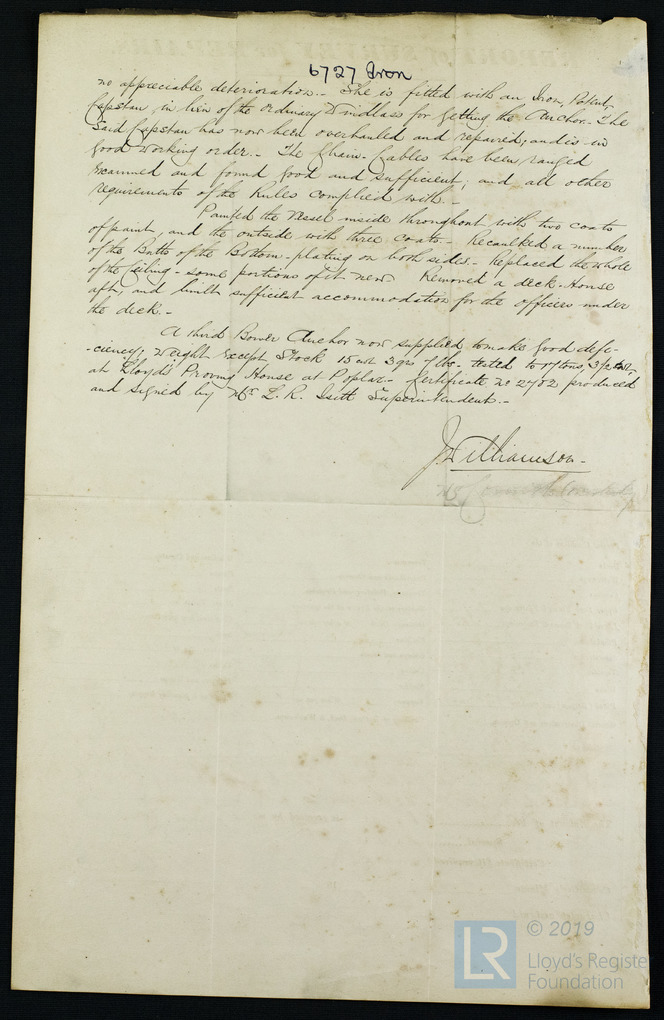 6727 Iron
no appreciable deterioration.- She is fitted with an Iron, Patent,
Capstan in lieu of the ordinary Windlass for getting the Anchor.- The
said Capstan has now been overhauled and repaired, and is in
good working order.- The Chain-Cables have been ranged
examined and found good and sufficient, and all other
requirements of the Rules complied with.-
Painted the Vessel inside throughout with two coats
of paint, and the outside with three coats.- Recaulked a number
of the Butts of the Bottom-plating on both sides.- Replaced the whole
of the Ceiling - some portions of it new Removed a deck-House
aft, and built sufficient accommodation for the officers under
the deck.-
A third Bower Anchor now supplied to make good defi-
-ciency, weight except Stock 15 cwt 3 qrs 7 lbs.- tested to 17 tons,
at Lloyds' Proving House at Poplar.- Certificate No 2782 produced
and signed by Mr L. R. Isitt Superintendent.-
J Williamson
© 2019
LR
Lloyd's Register
Foundation